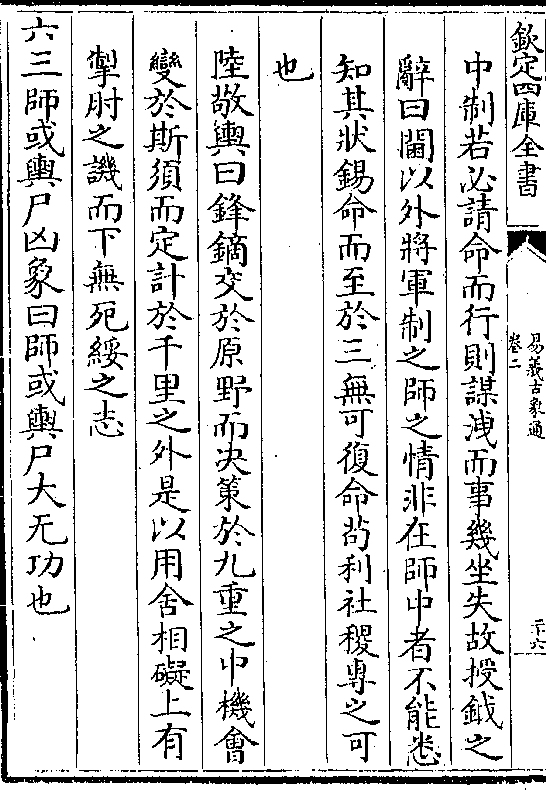 欽定四庫全書
易義古象通
卷二
二十六
中制若必請命而行則謀洩而事幾坐失故授鉞之
辭曰閫以外將軍制之師之情非在師中者不能悉
知其狀錫命而至於三無可復命苟利社稷專之可
也
陸敬輿曰鋒鏑交於原野而决策於九重之中機會
變於斯須而定計於千里之外是以用舍相礙上有
掣肘之譏而下無死綏之志
六三師或輿尸凶象曰師或輿尸大无功也